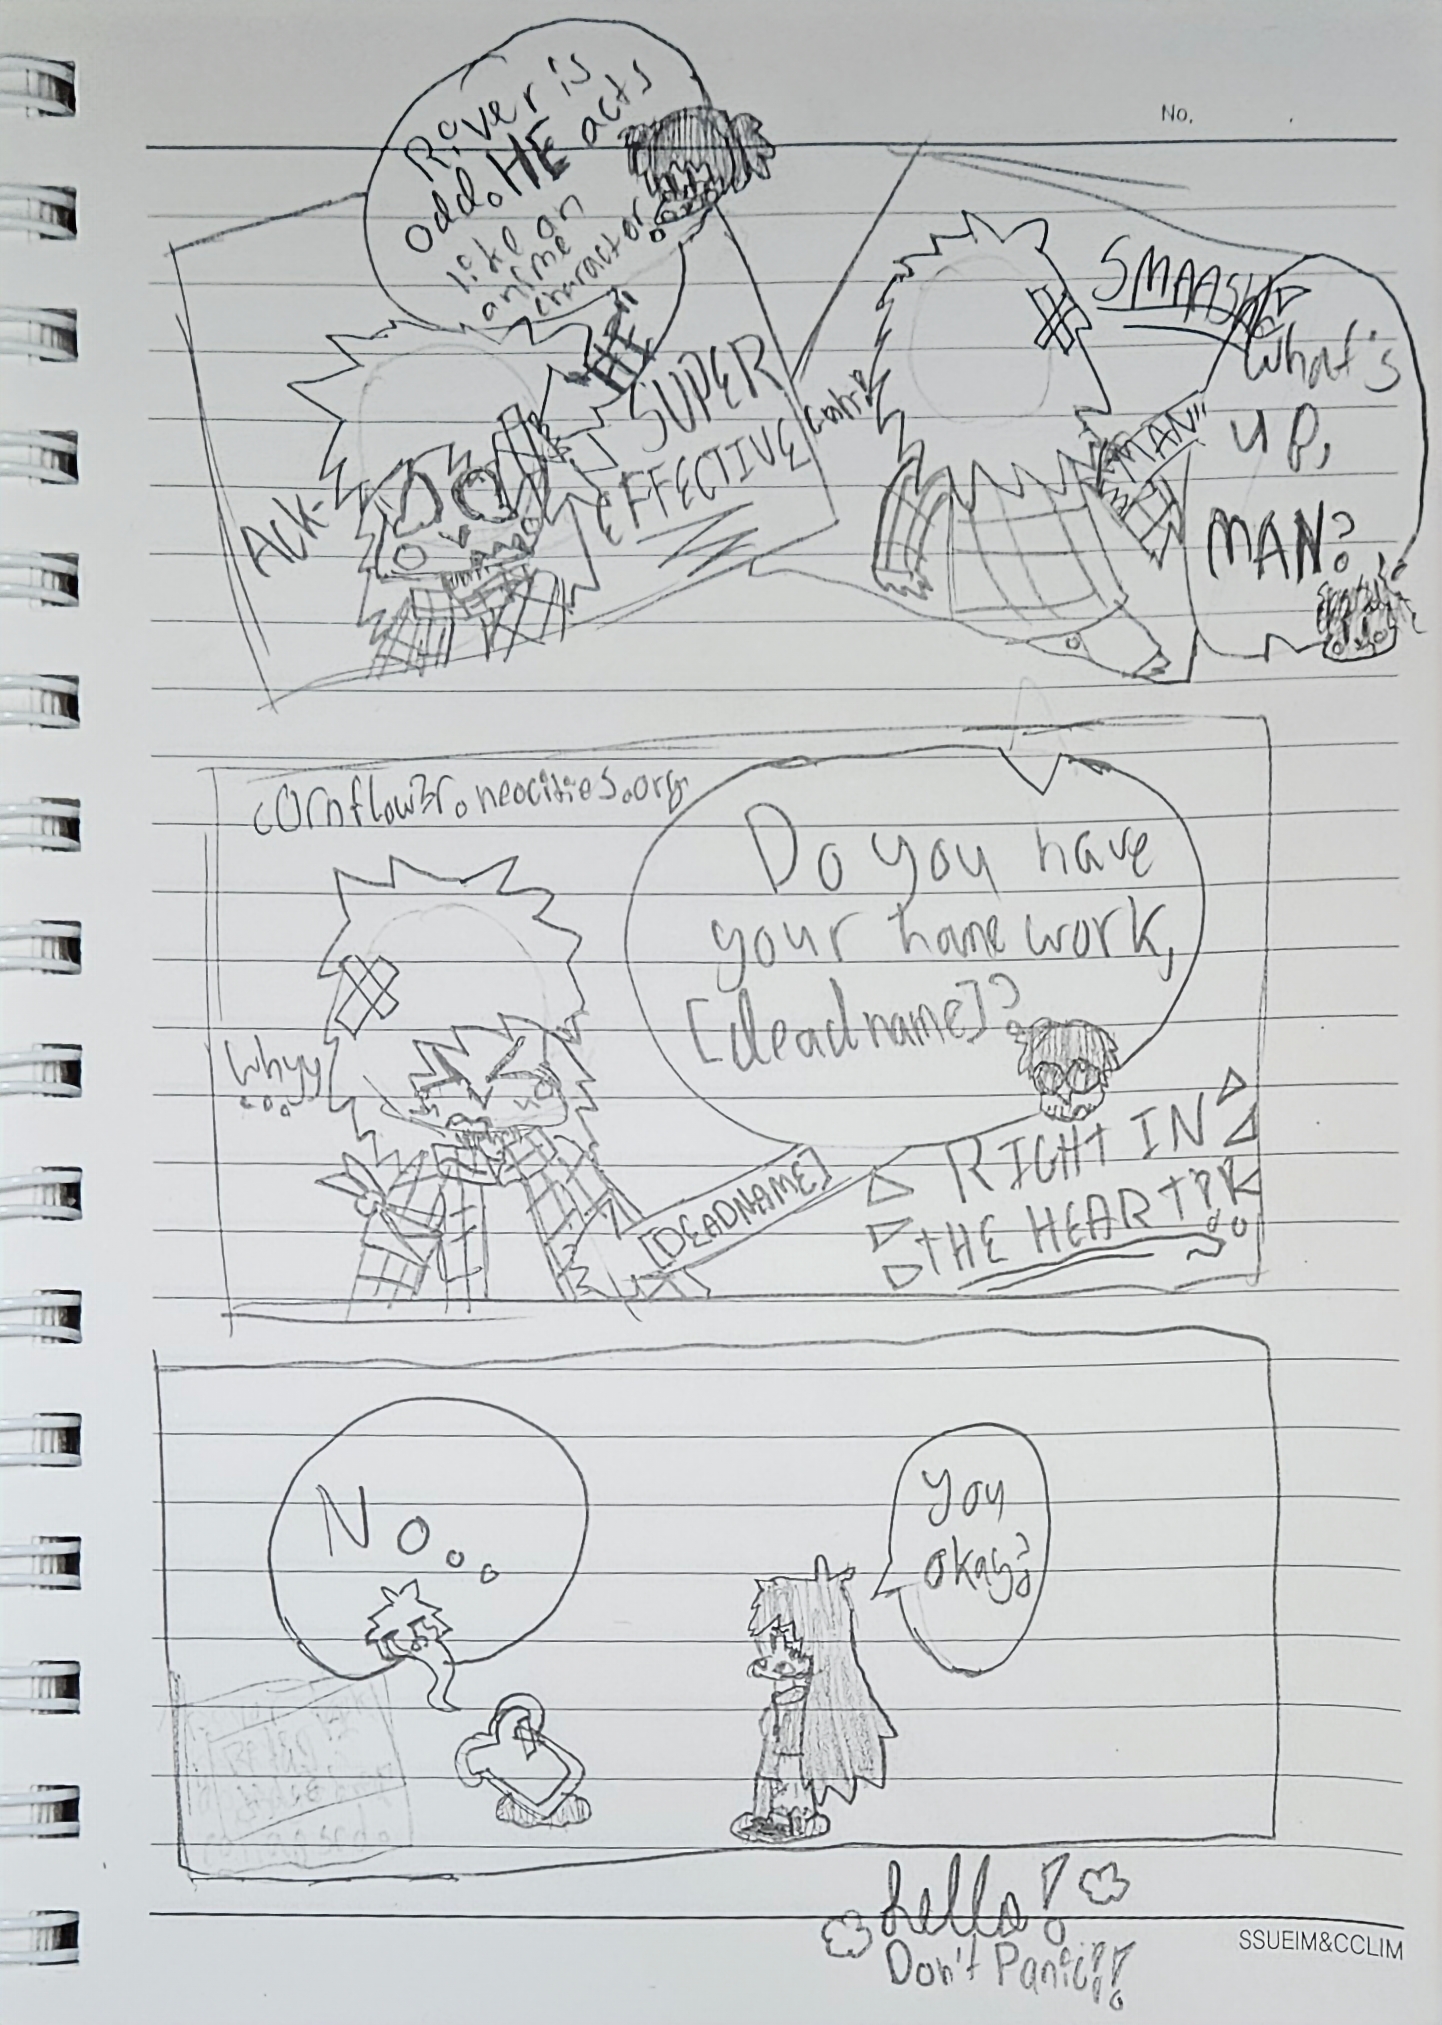 No.
River is
odd. HE acts
like an
anime
character.
"HE"
SUPER
EFFECTIVE
ACK-
SMAASH
What's
up,
MAN?
"MAN"
c0rnflow3r.neocities.org
Do you have
your home work,
[deadname]?
Whyy
...
[DEADNAME]
RIGHT IN
THE HEART!!
No...
You
okay?
hello!
Don't Panic!!
SSUEIM&CCLIM